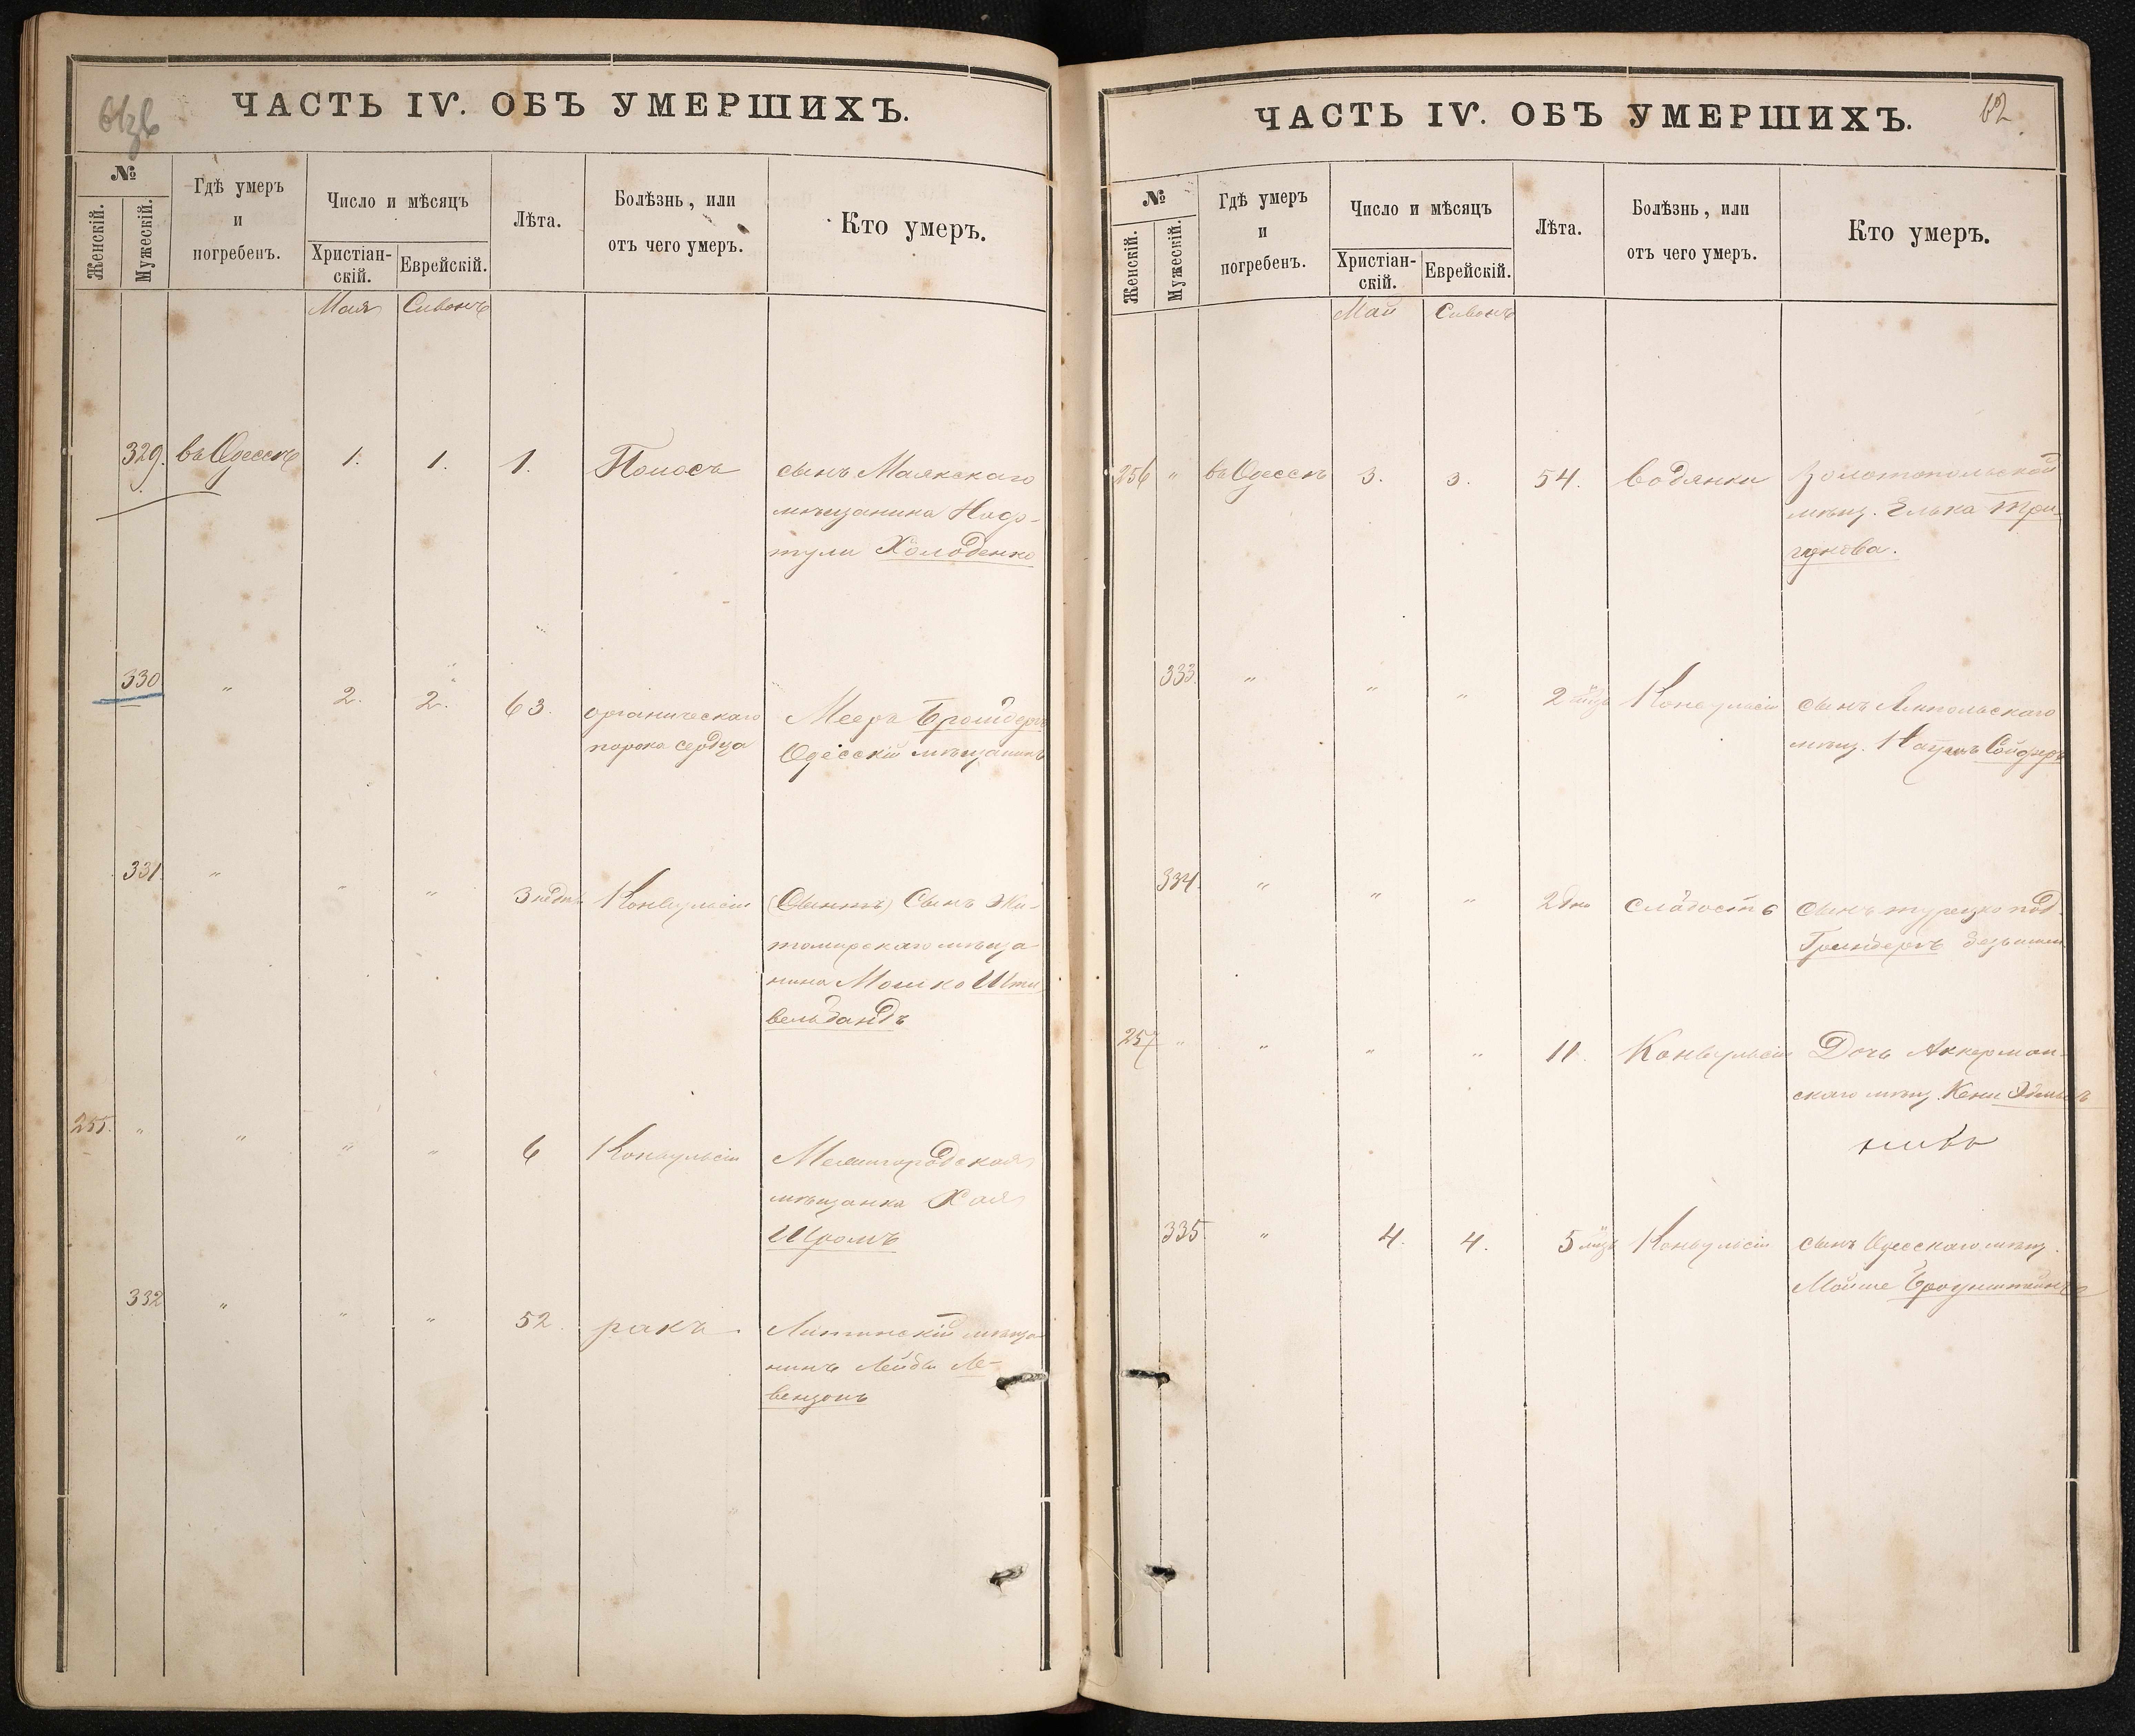 ЧАСТЬ IV. ОБЪ УМЕРШИХЪ.
№
Женскій.
Мужескій.
Гдѣ умеръ
и
погребенъ.
Число и мѣсяцъ
Христіан-
скій.
Еврейскій.
Лѣта.
Болѣзнь, или
отъ чего умеръ.
Кто умеръ.
Мая Сивонъ
329. въ Одессѣ 1. 1. 1. Поносъ сынъ Маякскаго
мѣщанина Наф-
тули Холоденко
330 " 2. 2. 63. органическаго
порока сердца
Мееръ
Одесскій мѣщанинъ
331. " " " 3 недѣл Конвульсіи Сынъ Жи-
томирскаго мѣща-
нина Мошко Шти-
вельбандъ
255. " " " " 6 Конвульсіи
мѣщанка Хая
Штромъ
332 " " " 52. ракъ. Литинскій мѣща-
нинъ Лейбы Ле-
вензонъ
ЧАСТЬ IV. ОБЪ УМЕРШИХЪ.
62
№
Женскій.
Мужескій.
Гдѣ умеръ
и
погребенъ.
Число и мѣсяцъ
Христіан-
скій.
Еврейскій.
Лѣта.
Болѣзнь, или
отъ чего умеръ.
Кто умеръ.
Май Сивонъ
256 " въ Одессѣ 3. 3. 54. водянки Золотопольской
мѣщ. Елька Три-
гунова.
333. " " " 2 Конвульсіи сынъ Ямпольскаго
мѣщ. Сойферъ
334. " " " 2 дня слабость сынъ турецко под.
257 " " " " 11. Конвульсіи Дочь Аккерман-
скаго мѣщ.
335 " 4. 4. 5 Конвульсіи сынъ Одесскаго мѣщ.
Мойше Броунштейнъ